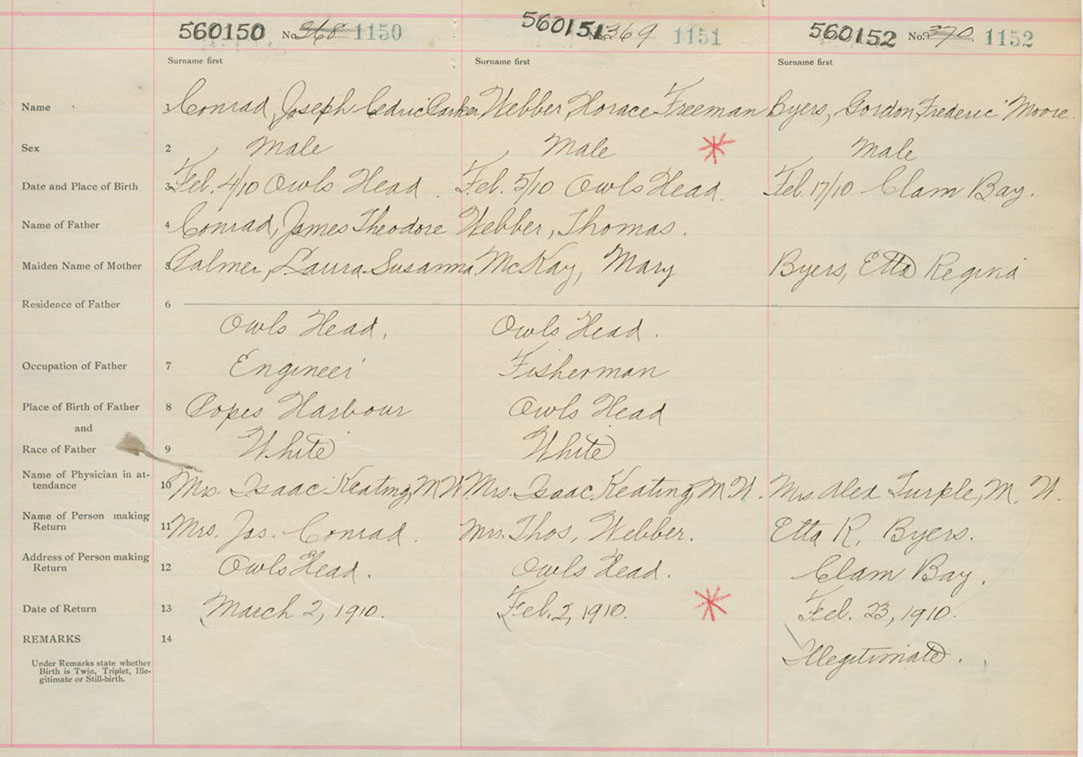 560150 No. 368 1150 560151 No. 369 1151 560152 No. 370 1152
Surname first Surname first Surname first
Name 1 Conrad, Joseph Cedric Parker Webber, Horace Freeman Byers, Gordon, Frederic Moore.
Sex 2 Male Male Male
Date and Place of Birth 3 Feb. 4/10 Owls Head. Feb. 5/10 Owls Head. Feb. 17/10 Clam Bay.
Name of Father 4 Conrad, James Theodore Webber, Thomas.
Maiden Name of Mother 5 Palmer, Laura Susanna McKay, Mary Byers, Etta Regina
Residence of Father 6
Owls Head. Owls Head.
Occupation of Father 7 Engineer Fisherman
Place of Birth of Father 8 Popes Harbour Owls Head
and
Race of Father 9 White White
Name of Physician in at-
tendance 10 Mrs. Isaac Keating, M.W. Mrs. Isaac Keating, M.W. Mrs. Alex Turple, M. W.
Name of Person making
Return 11 Mrs. Jas. Conrad. Mrs. Thos. Webber. Etta R. Byers.
Address of Person making
Return 12 Owls Head. Owls Head. Clam Bay.
Date of Return 13 March 2, 1910. Feb. 2, 1910. Feb. 23, 1910.
REMARKS 14
Illegitimate.
Under Remarks state whether
Birth is Twin, Triplet, Ille-
gitimate or Still-birth.